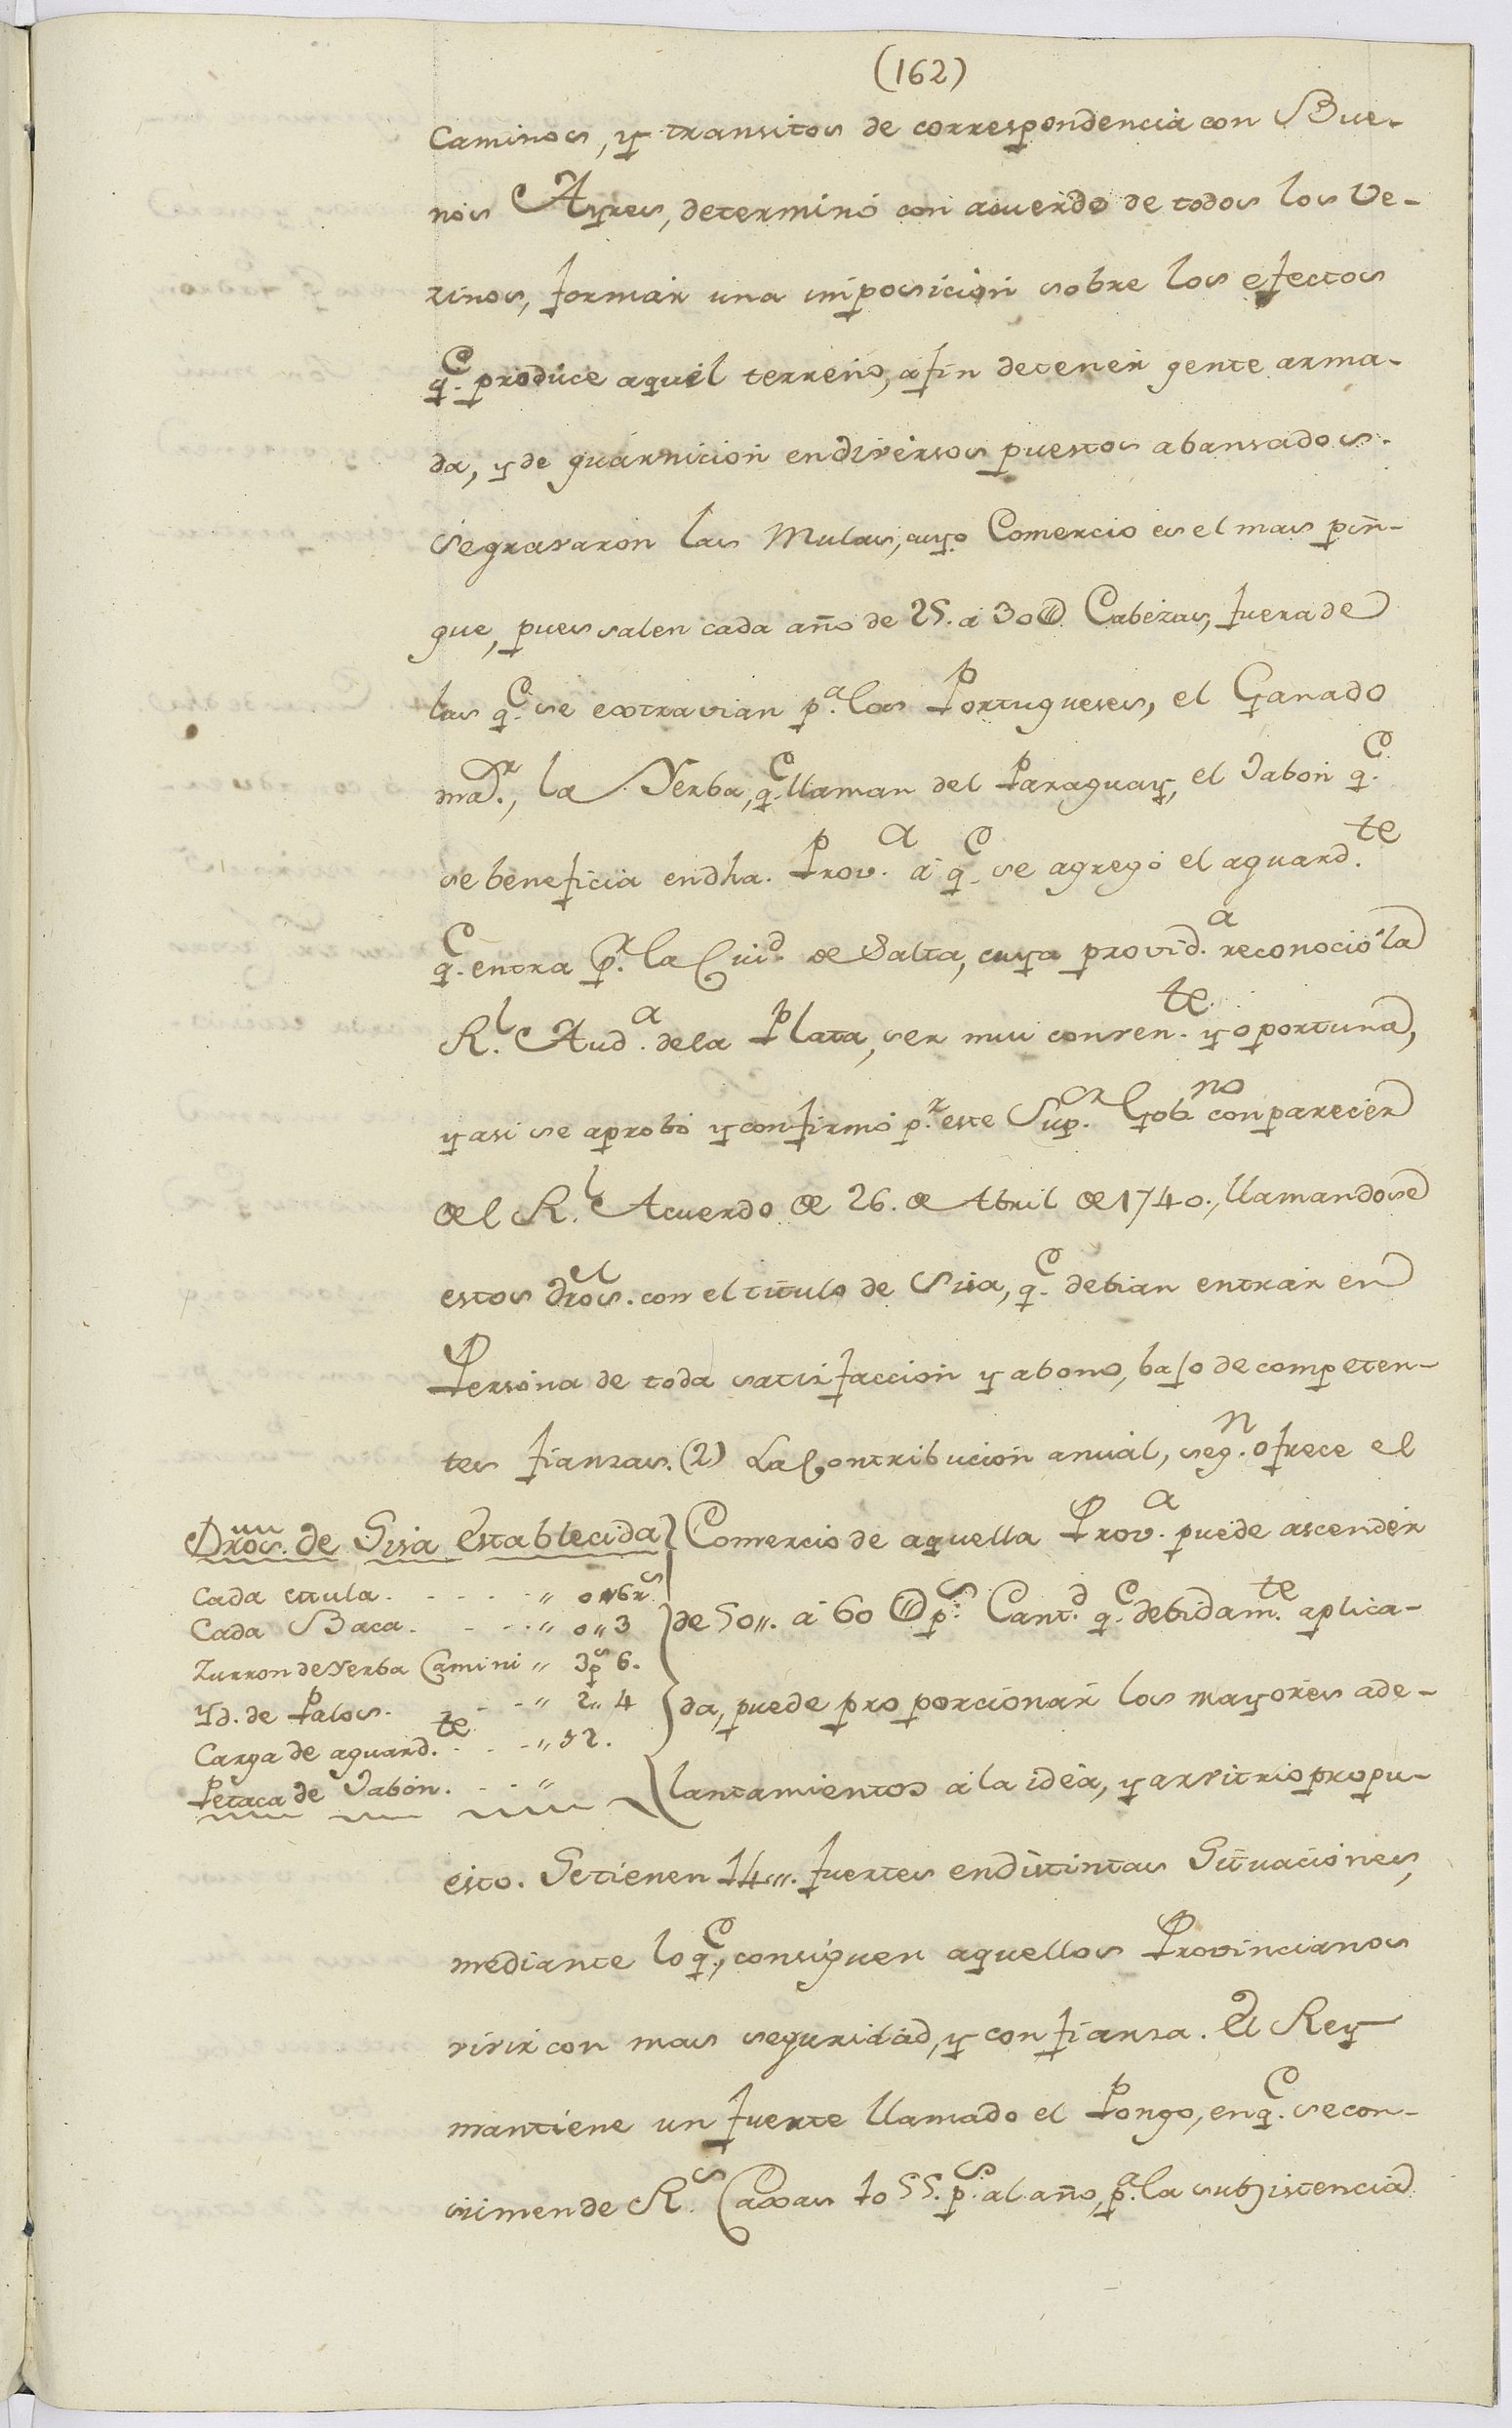 (162)
caminos, y transitos de correspondencia con Bue-
nos Ayres, determinó con acuerdo de todos los Ve-
zinos, formar una imposicion sobre los efectos
q.e produce aquel terreno, afin detener gente arma-
da, y de guarnicion endiversos puestos abansados.
Segravaron las Mulas, cuyo Comercio es el mas pin-
gue, pues salen cada año de 25. a 30@ Cabezas, fuera de
las q.e se extravian p.a los Portugueses, el Ganado
ma.r, la Yerba, q.e llaman del Paraguay, el Jabon q.e
se beneficia endha. Prov.a á q.e se agregó el aguard.te
q.e entra p.a la Ciud.d de Salta, cuya provid.a reconoció la
R.l Aud.a dela Plata, ser mui conven.te y oportuna,
y asi se aprobó y confirmó p.r este Sup.or Gob.no con parecer
del R.l Acuerdo de 26. de Abril de 1740., llamandose
estos dros. con el titulo de Sisa, q.e debian entrar en
Persona de toda satisfaccion y abono, bajo de competen-
tes fianzas. (2) La Contribucion anual, seg.n ofrece el
Comercio de aquella Prov.a puede ascender
de 50,,. á 60@ p.s Cant.d q.e debidam.te aplica-
da, puede proporcionar los mayores ade-
lantamientos á la idea, y arvitrio propu-
esto. Setienen 14,,. fuertes endistintas Situaciones,
mediante lo q.e, consiguen aquellos Provincianos
vivir con mas seguridad, y confianza. El Rey
mantiene un fuerte llamado el Pongo, en q.e secon-
sumen de R.s Caxas 1055. p.s al año, p.a la subsistencia
Dros. de Sisa Establecida
Cada Mula. . . . . " 0"6r.s
Cada Baca. . . . . " 0"3
Zurron de Yerba Camini " 3p.s 6.
Yd. de Palos. . . . " 2" 4
Carga de aguard.te . . . " 12.
Petaca de Jabon. . . "